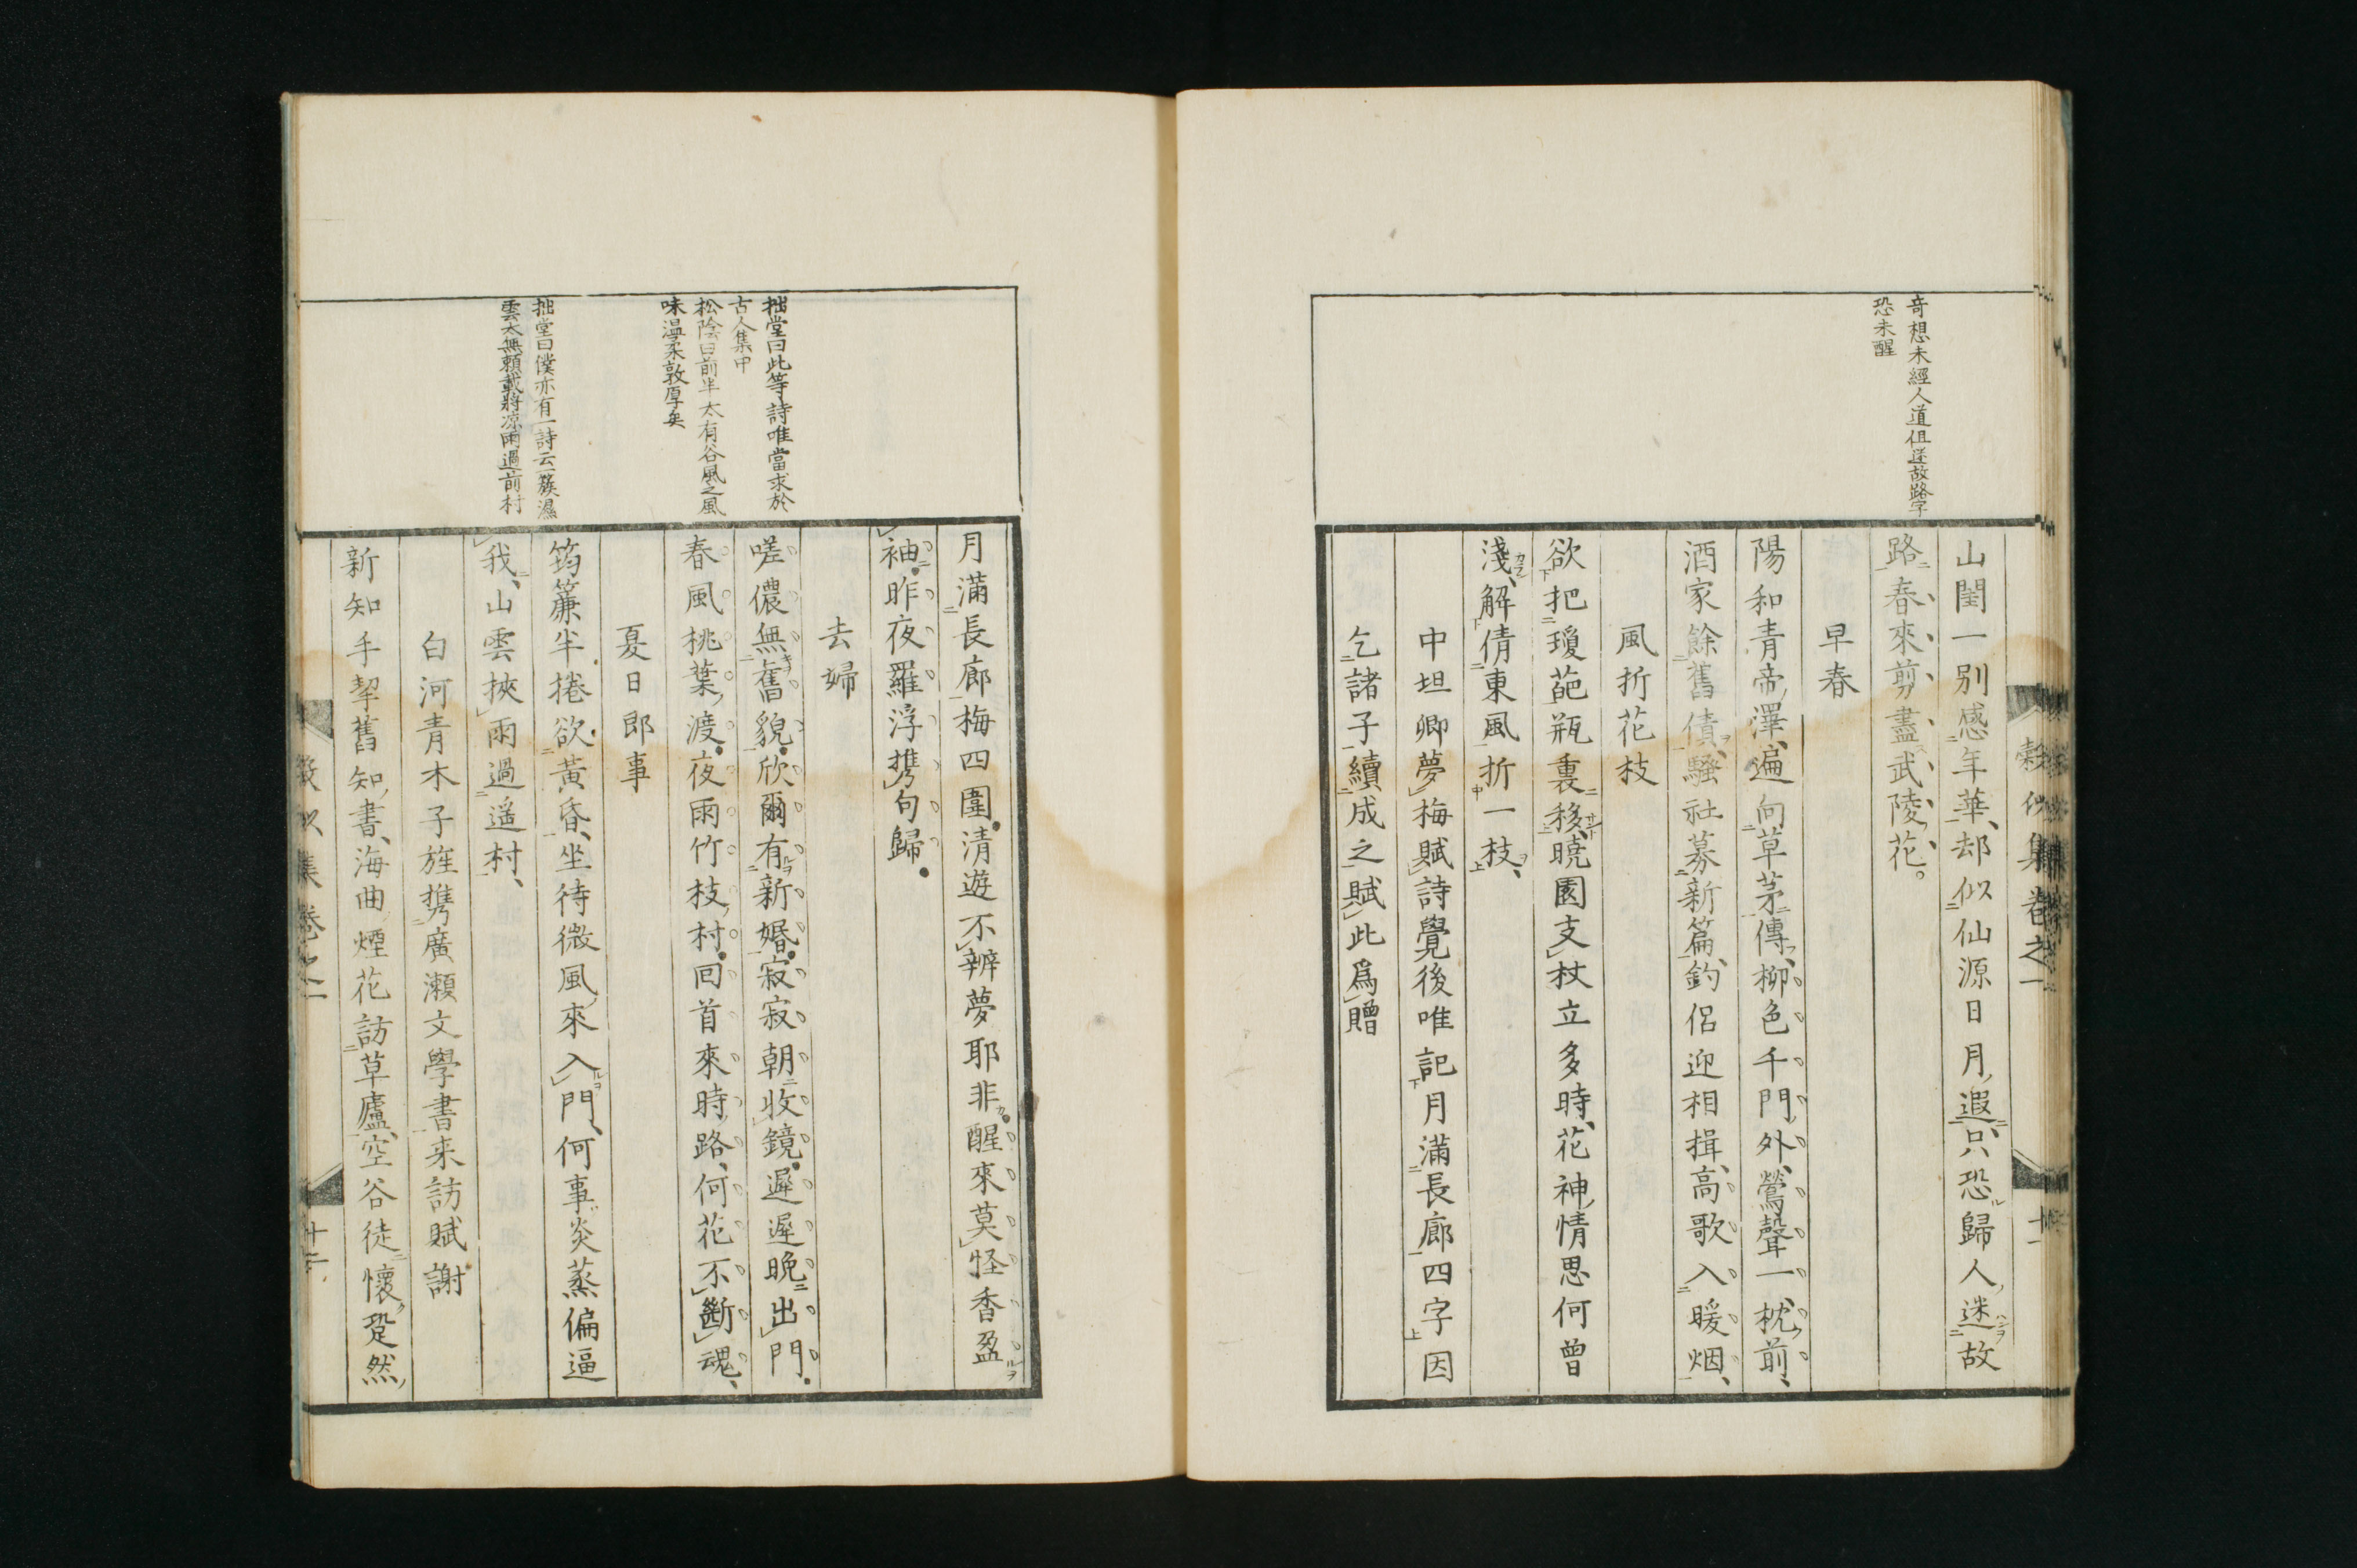 奇想未經人道但迷故路字
恐未醒
山閨一別感年華却似仙源日月遐只恐歸人迷故
路春來剪盡武陵花
早春
陽和青帝澤遍向草茅傳柳色千門外鶯聲一枕前
酒家餘舊債騷社募新篇釣侶迎相揖高歌入暖烟
風折花枝
欲把瓊葩瓶裏移曉園支杖立多時花神情思何曾
淺解倩東風折一枝
中坦卿夢梅賦詩覺後唯記月滿長廊四字因
乞諸子續成之賦此爲贈
穀似集卷之一
十一
拙堂曰此等詩唯當求於
古人集中
松陰曰前半太有谷風之風
味溫柔敦厚矣
拙堂曰僕亦有一詩云一簇濕
雲太無賴載將凉雨過前村
月滿長廊梅四圍清遊不辨夢耶非醒來莫怪香盈
袖昨夜羅浮携句歸
去婦
嗟儂無舊貌欣爾有新婚寂寂朝收鏡遲遲晚出門
春風桃葉渡夜雨竹枝村回首來時路何花不斷魂
夏日郎事
筠簾半捲欲黃昏坐待微風來入門何事炎蒸偏逼
我山雲挾雨過遥村
白河青木子旌携廣瀨文學書来訪賦謝
新知手挈舊知書海曲煙花訪草廬空谷徒懷跫然
集卷之一
十二